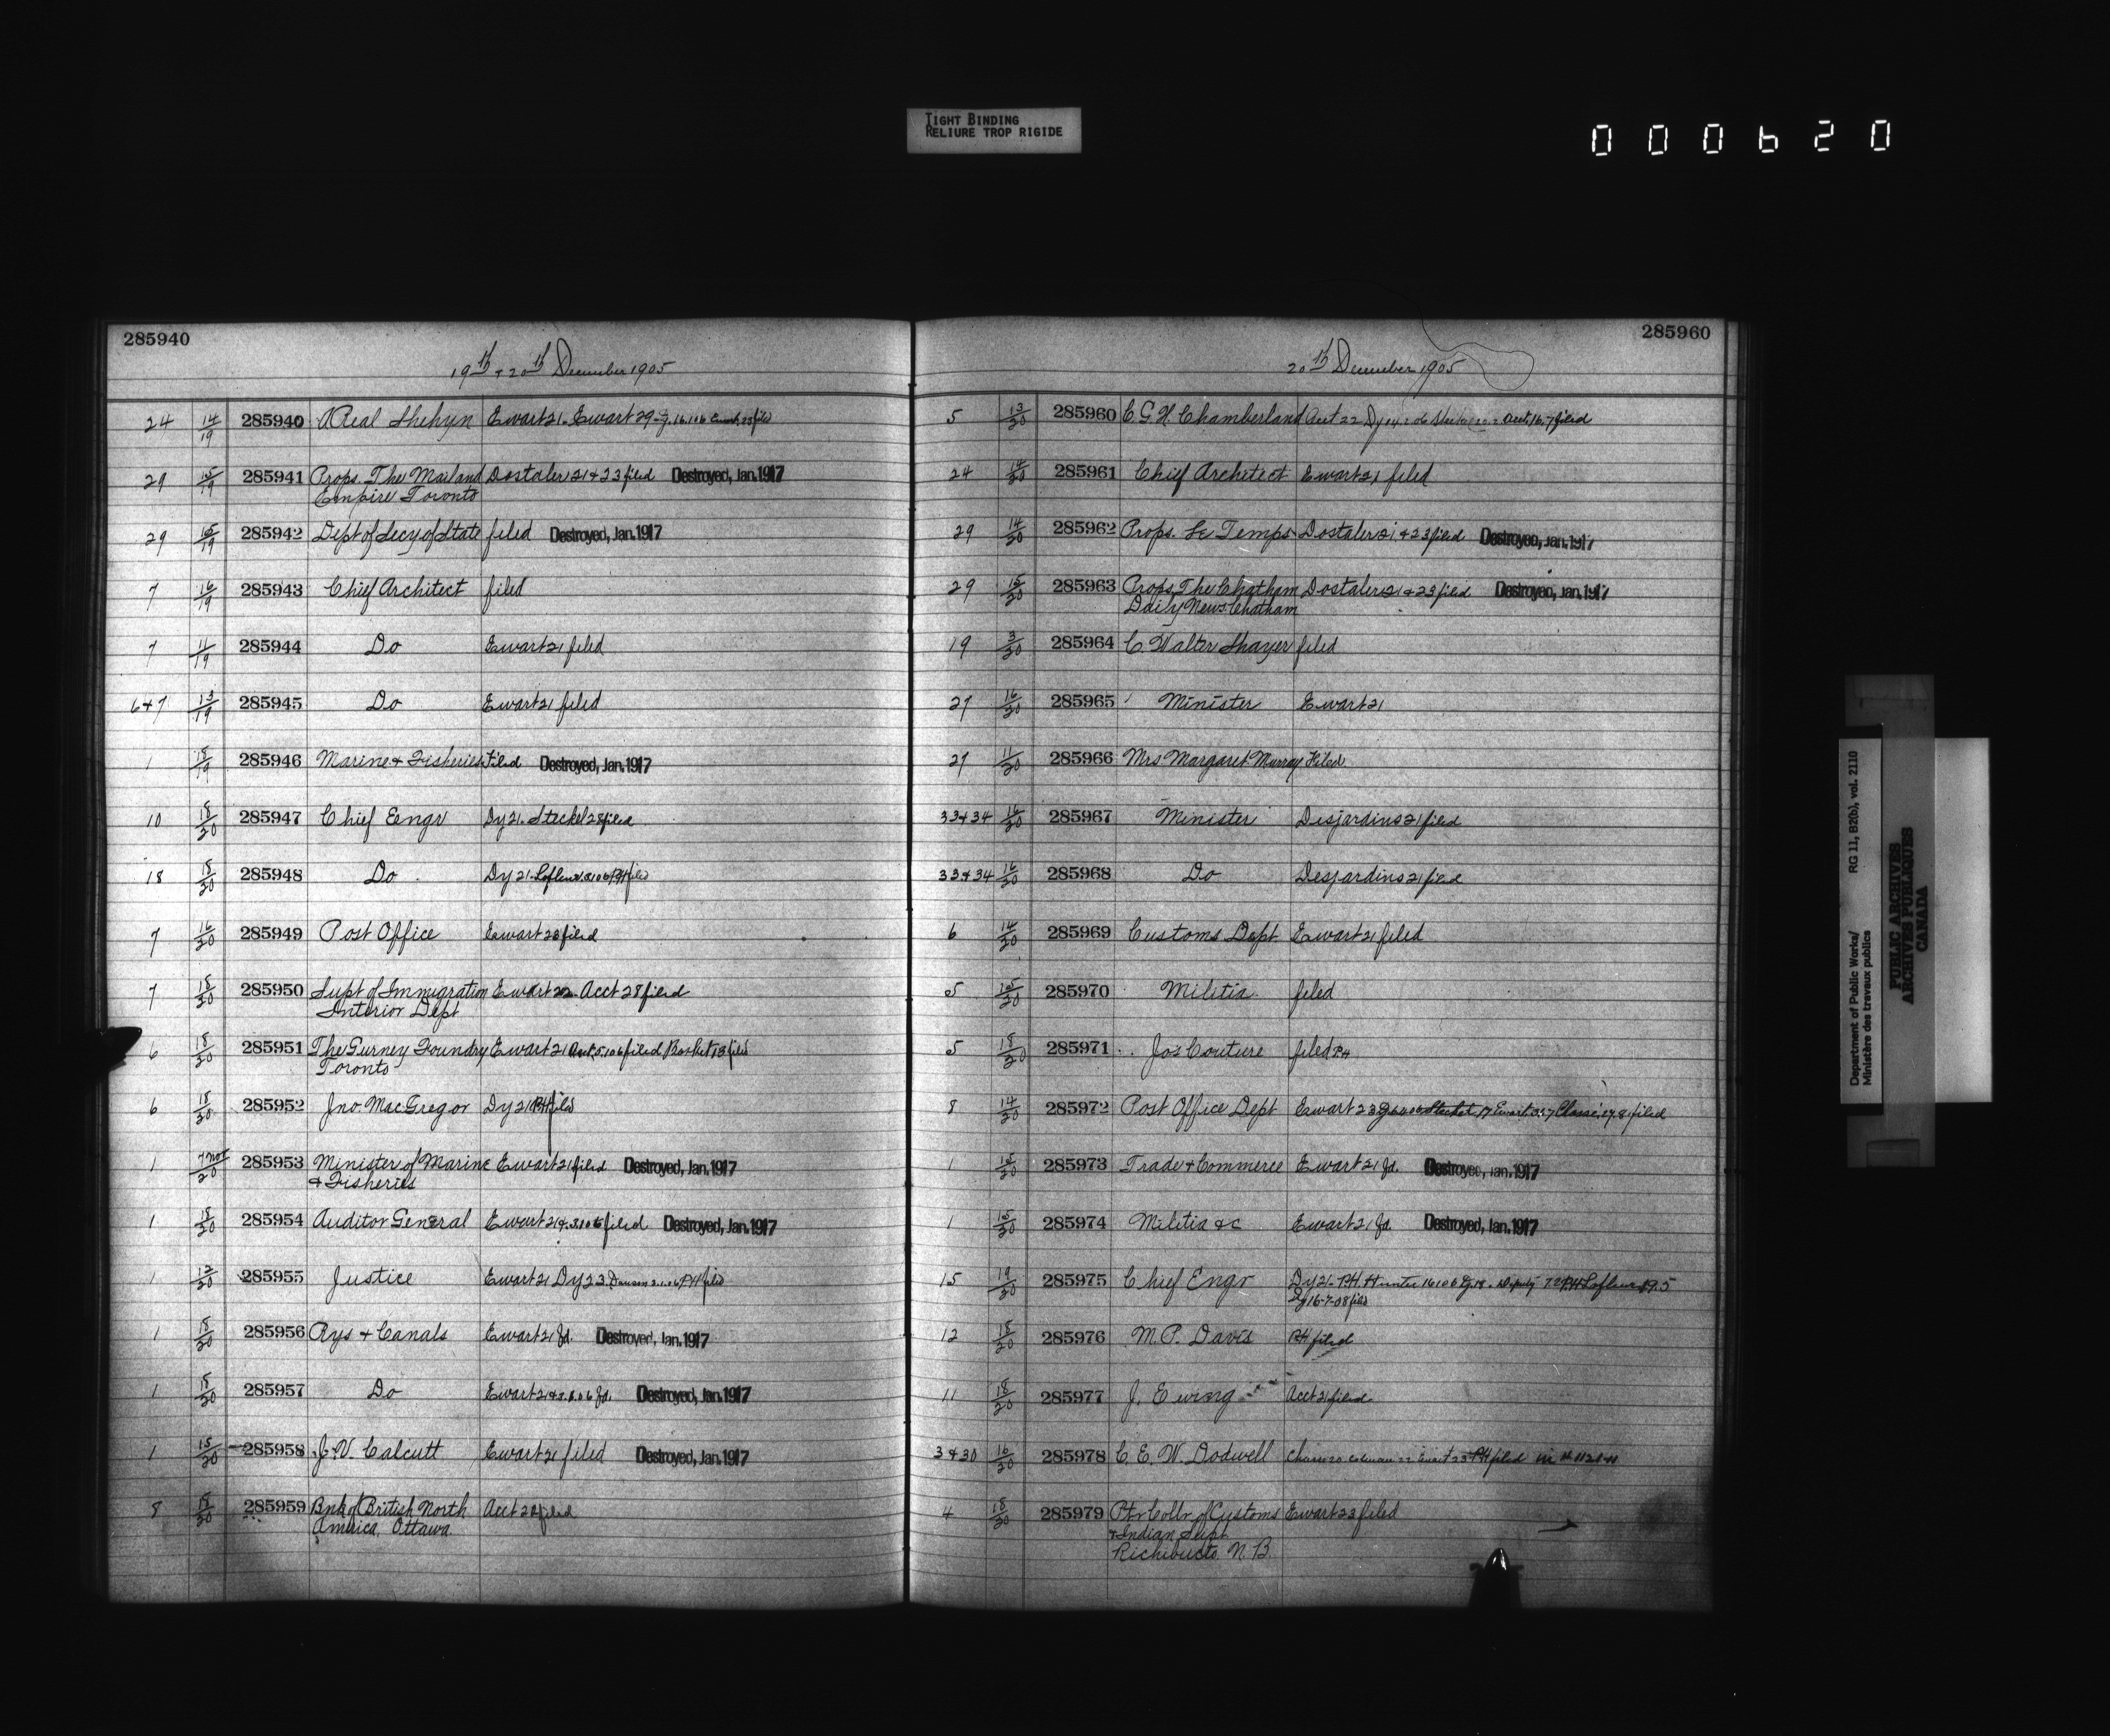 TIGHT BINDING
RELIURE TROP RIGIDE
000620
285940
19th + 20th December 1905
24 14/19 285940 Real Shehyn Ewart 21. Ewart 29
29 15/19 285941 Props. The Mail and Dostaler 21 & 23 filed Destroyed, Jan. 1917
Empire Toronto
29 15/19 285942 Dept of Secy of State filed Destroyed, Jan. 1917
7 16/19 285943 Chief Architect filed
7 11/19 285944 Do Ewart 21 filed
6+7 13/19 285945 Do Ewart 21 filed
1 18/19 285946 Marine + Fisheries Filed Destroyed, Jan. 1917
10 18/20 285947 Chief Engr Dy 21. Steckel 28 filed
18 18/20 285948 Do Dy 21. Lafleur filed
7 16/20 285949 Post Office Ewart 23 filed
7 18/20 285950 Supt of Immigration Ewart 22. Acct 28 filed
Interior Dept
6 18/20 285951 The Gurney Foundry Ewart 21 Acct filed
Toronto
6 18/20 285952 Jno. MacGregor Dy 21 PH filed
1 7 Nov/20 285953 Minister of Marine Ewart 21 filed Destroyed, Jan. 1917
+ Fisheries
1 18/20 285954 Auditor General Ewart 21 filed Destroyed, Jan. 1917
1 12/20 285955 Justice Ewart 21 Dy 23 PH filed
1 18/20 285956 Rys + Canals Ewart 21 fd. Destroyed, Jan. 1917
1 18/20 285957 Do Ewart 21 fd. Destroyed, Jan. 1917
1 15/20 285958 J. V. Calcutt Ewart 21 filed Destroyed, Jan. 1917
8 18/20 285959 Bnk of British North Acct 22 filed
America, Ottawa
285960
20th December 1905
5 13/20 285960 C. G. H. Chamberland Acct 22 Acct. 16.7 filed
24 14/20 285961 Chief Architect Ewart 21 filed
29 14/20 285962 Props. Le Temps Dostaler 21 + 23 filed Destroyed, Jan. 1917
29 15/20 285963 Props. The Chatham Dostaler 21 + 23 filed Destroyed, Jan. 1917
Daily News. Chatham
19 3/20 285964 C. Walter filed
27 16/20 285965 Minister Ewart 21
27 11/20 285966 Mrs Margaret Murray Filed
33+34 16/20 285967 Minister Desjardins 21 filed
33+34 16/20 285968 Do Desjardins 21 filed
6 14/20 285969 Customs Dept Ewart 21 filed
5 15/20 285970 Militia filed
5 18/20 285971 Jos Couture filed PH
8 14/20 285972 Post Office Dept Ewart 23 filed
1 15/20 285973 Trade + Commerce Ewart 21 fd. Destroyed, Jan. 1917
1 15/20 285974 Militia &c Ewart 21 fd. Destroyed, Jan. 1917
15 19/20 285975 Chief Engr Dy 21. PH. Hunter Lafleur
16-7-08 filed
12 18/20 285976 M. P. Davis PH filed
11 18/20 285977 J. Ewing Acct 21 filed
3 & 30 16/20 285978 C. E. W. Dodwell Ewart 23 PH filed
4 18/20 285979 Ptr Collr of Customs Ewart 23 filed
+ Indian Supt
Richibucto N. B
Department of Public Works/ RG 11, B2(b), vol. 2110
Ministère des travaux publics
PUBLIC ARCHIVES
ARCHIVES PUBLIQUES
CANADA